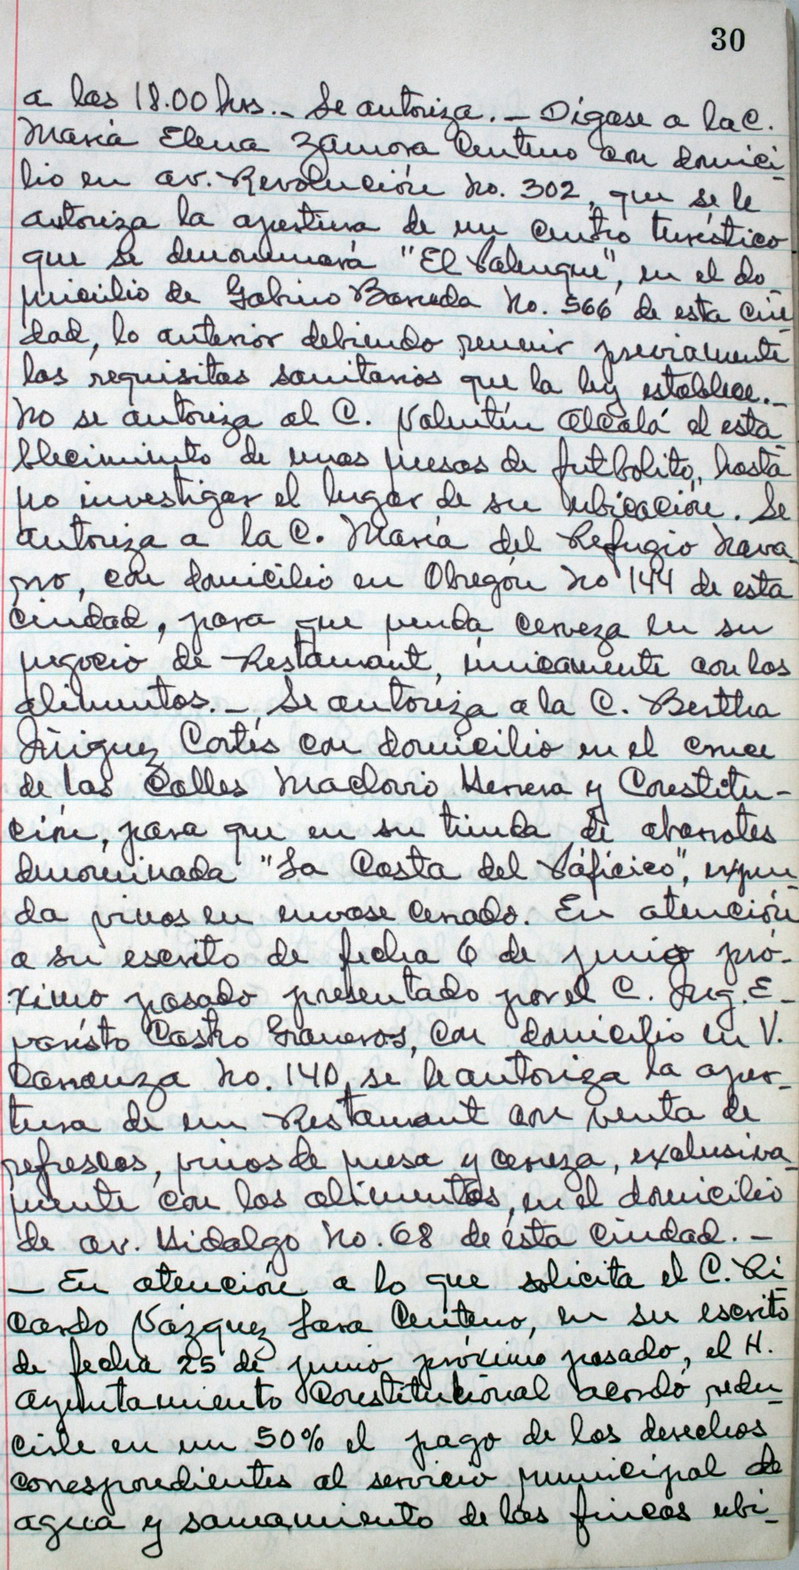 30
a las 18.00 hrs.- Se autoriza. - Dígase a la C.
María Elena Zamora Centeno con domici-
lio en av. Revolución No. 302, que se le
autoriza la apertura de un centro turístico
que se denominará "El Palenque", en el do-
micilio de Gabino Barreda No. 566 de esta ciu-
dad, lo anterior debiendo reunir previamente
los requisitos sanitarios que la ley establece.-
No se autoriza al C. Valentín Alcalá el esta-
blecimiento de unas mesas de futbolito, hasta
no investigar el lugar de su ubicación. Se
autoriza a la C. María del Refugio Nava-
rro, con domicilio en Obregón No 144 de esta
ciudad, para que venda cerveza en su
negocio de Restaurant, únicamente con los
alimentos. - Se autoriza a la C. Bertha
Iñiguez Cortés con domicilio en el cruce
de las Calles Maclovio Herrera y Constitu-
ción, para que en su tienda de abarrotes
denominada "La Costa del Páficico", expen-
da vinos en envase cerrado. En atención
a su escrito de fecha 6 de junio pró-
ximo pasado presentado por el C. Ing. E-
varisto Castro Graneros, con domicilio en V.
Carranza No. 140, se le autoriza la aper-
tura de un Restaurant con venta de
refrescos, vinos de mesa y cerveza, exclusiva-
mente con los alimentos, en el domicilio
de av. Hidalgo No. 68 de ésta ciudad. -
- En atención a lo que solicita el C. Ri
cardo Vázquez Lara Centeno, en su escrito
de fecha 25 de junio próximo pasado, el H.
ayuntamiento Constitucional acordó redu-
cirle en un 50% el pago de los derechos
correspondientes al servicio municipal de
agua y saneamiento de las fincas ubi-